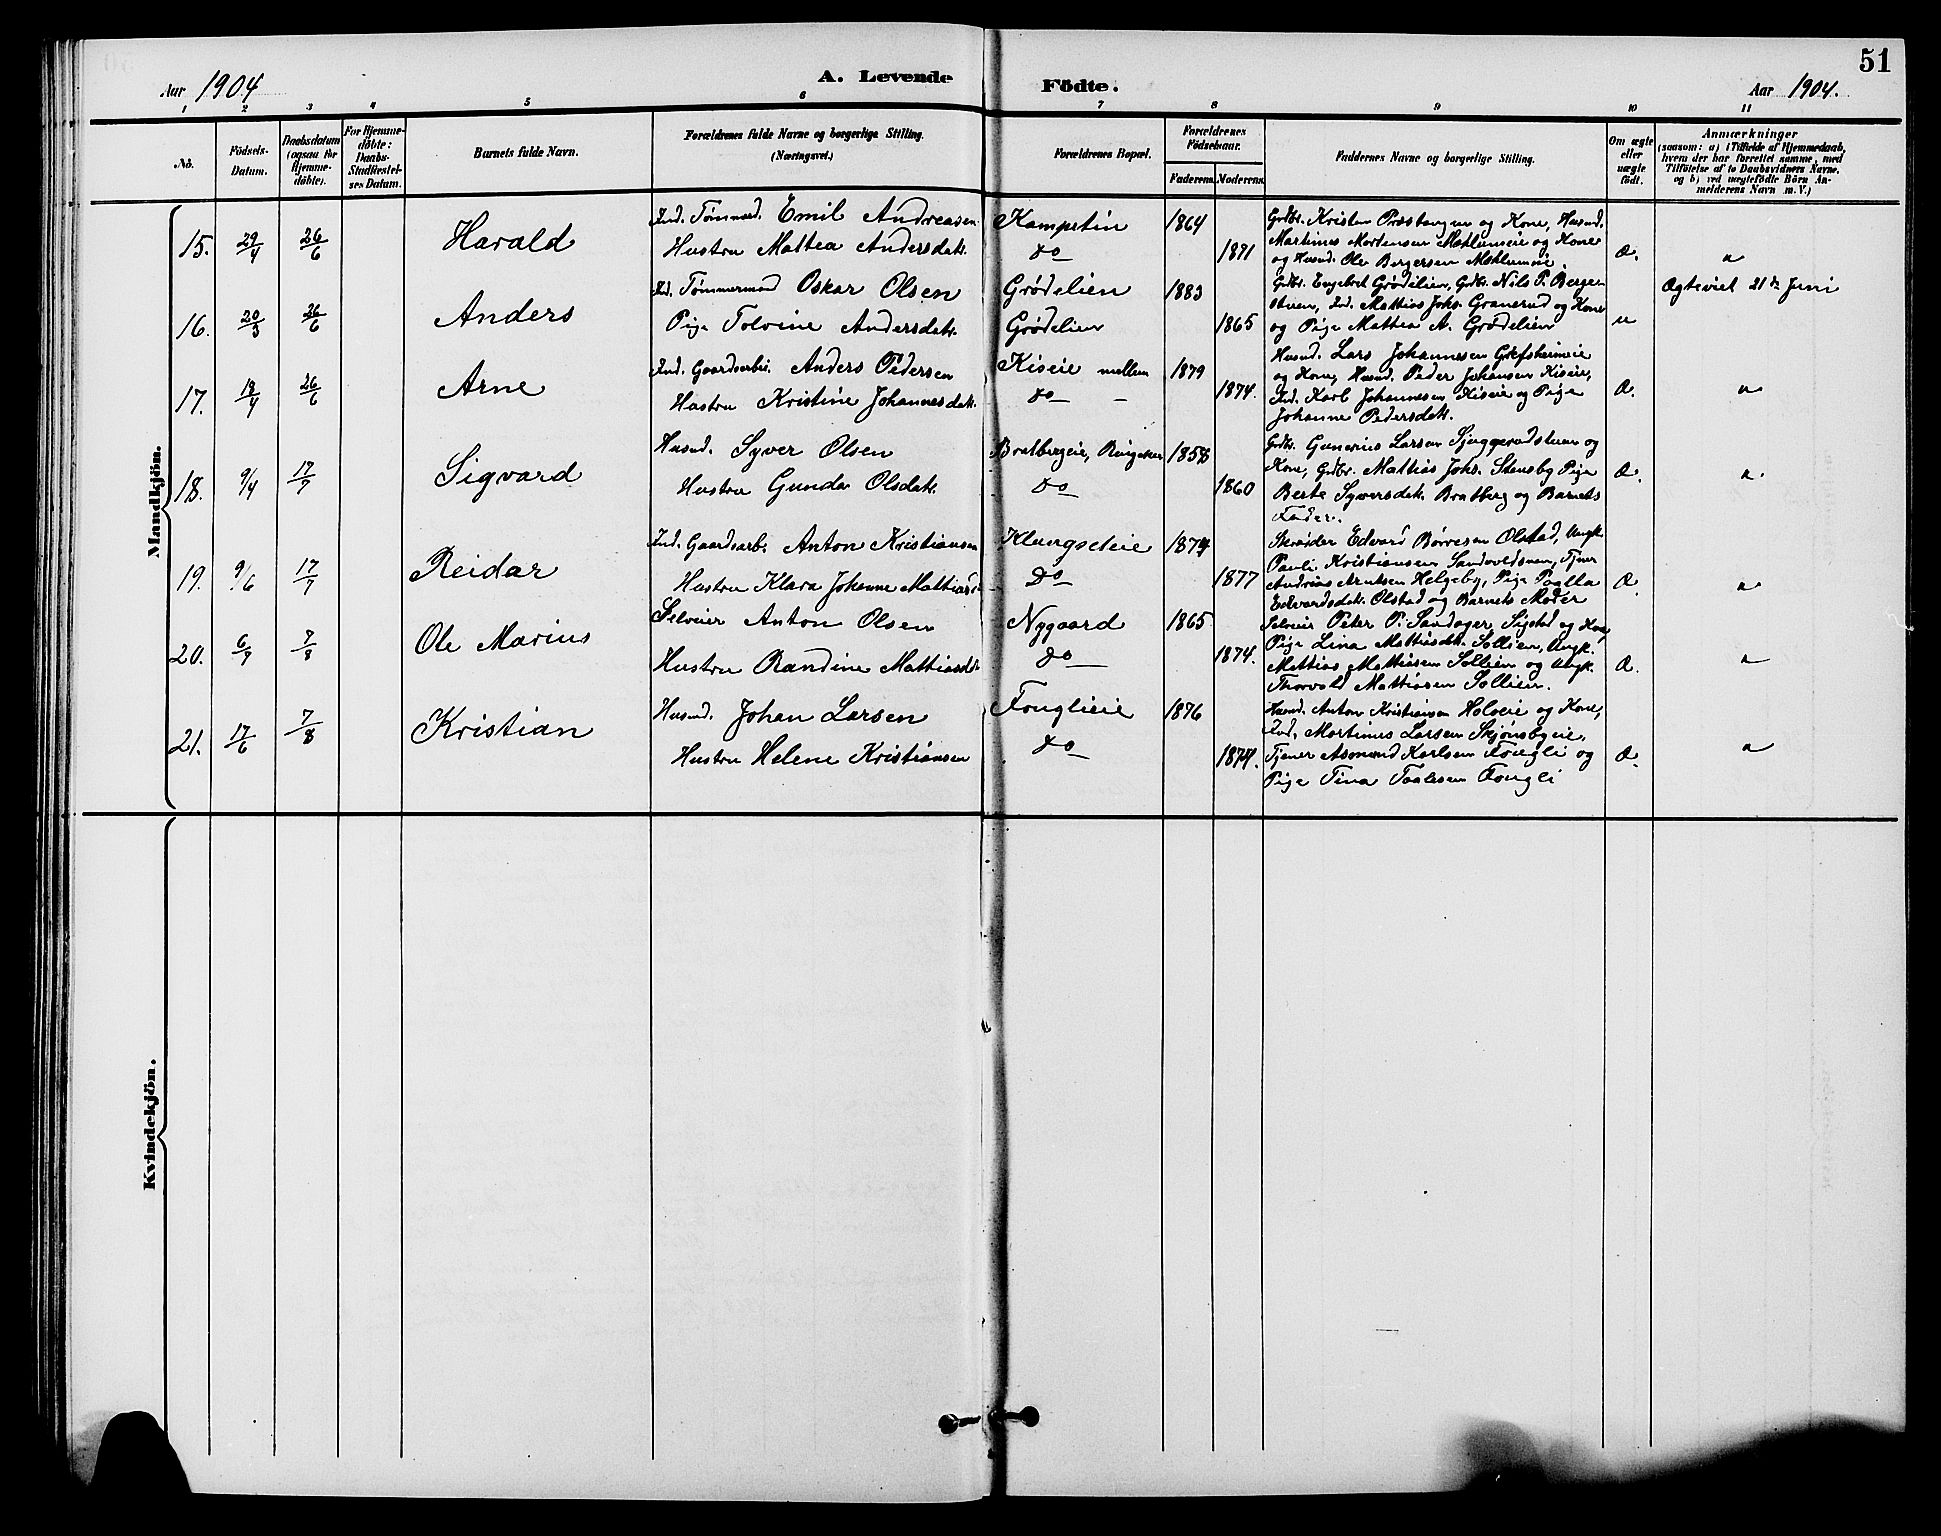 51
Aar 1904
A. Levende Födte.
Aar 1904.
1 2 3 4 5 6 7 8 9 10 11
No.
Födsels-Datum.
Daabsdatum (ogsaa for Hjemme-döbte).
For Hjemme-döbte: Daabs-Stadfæstel-ses Datum.
Barnets fulde Navn.
Forældrenes fulde Navne og borgerlige Stilling. (Næringsvei.)
Forældrenes Bopæl.
Forældrenes Födselsaar.
Faderens. Moderens.
Faddernes Navne og borgerlige Stilling.
Om ægte eller uægte födt.
Anmærkninger
(saasom: a) i Tilfælde af Hjemmedaab,
hvem der har forrettet samme, med
Tilföielse af to Daabsvidners Navne,
og b) ved uægtefödte Börn An-
melderens Navn m. V.)
Mandkjön.
15. 29/4 26/6 Harald
Ind. Tømmerd. Emil Andreasen
Hustru Mattea Andersdatr.
Kampetin
do
1864
1871
Grdbr. Kristen Præstengen og Kone, Husmd.
Martinus Mortensen Mæhlumeie og Kone
og Husmd. Ole Bergersen Mæhlumeie
Æ.
"
16. 20/3 26/6 Anders
Ind. Tømmermand Oskar Olsen
Pige Tolvine Andersdatr.
Grødelien
Grødelien
1883
1865
Grdbr. Engebret Grødelien, Grdbr. Nils P. Bergerstuen, Ind. Mattias Johs. Granerud og Kone
og Pige Mattea A. Grødelien
u
Ægteviet 21de Juni
17. 18/4 26/6 Arne
Ind. Gaardsarbei. Anders Pedersen
Hustru Kristine Johannesdatr.
Kiseie mellem
do –
1879
1874.
Husmd. Lars Johannesen Grefsheimeie
og Kone, Husmd. Peder Johansen Kiseie,
Ind. Karl Johannesen Kiseie og Pige
Johanne Pedersdatr.
Æ.
"
18. 9/4 17/7 Sigvard
Husmd. Syver Olsen
Hustru Gunda Olsdatr.
Bratbergeie, Ringsaker
do
1858
1860
Grdbr. Gunerius Larsen Sjuggerudstuen og
Kone, Grdbr. Mattias Johs. Stensby Pige
Berte Syversdatr. Bratberg og Barnets
Fader.
Æ.
"
19. 9/6 17/7 Reidar
Ind. Gaardsarb. Anton Kristiansen
Hustru Klara Johanne Mattiasd.
Klungseteie
do
1874
1877
Skræder Edvard Børresen Olstad, Ungk.
Pauli Kristiansen Sandvoldsven, Tjener
Andreas Arntsen Helgeby, Pige Paulla
Edvardsdatr. Olstad og Barnets Moder
Æ.
"
20. 6/7 7/8 Ole Marius
Selveier Anton Olsen
Hustru Randine Mattiasdatr.
Nygaard
do
1865
1874.
Selveier Peter P. Sandager, Sigstad og Kone,
Pige Lina Mattisdatr. Sollien, Ungk.
Mattias Mattiasen Sollien og Ungk.
Thorvald Mattiasen Sollien.
Æ.
"
21. 17/6 7/8 Kristian
Husmd. Johan Larsen
Hustru Helene Kristiansen
Fonglieie
do
1876
1877.
Husmd. Anton Kristiansen Holveie og Kone,
Ind. Martinus Larsen Skjønsbyeie,
Tjener Asmund Karlsen Fongli og
Pige Tina Taalesen Fongli
Æ.
"
Kvindekjön.